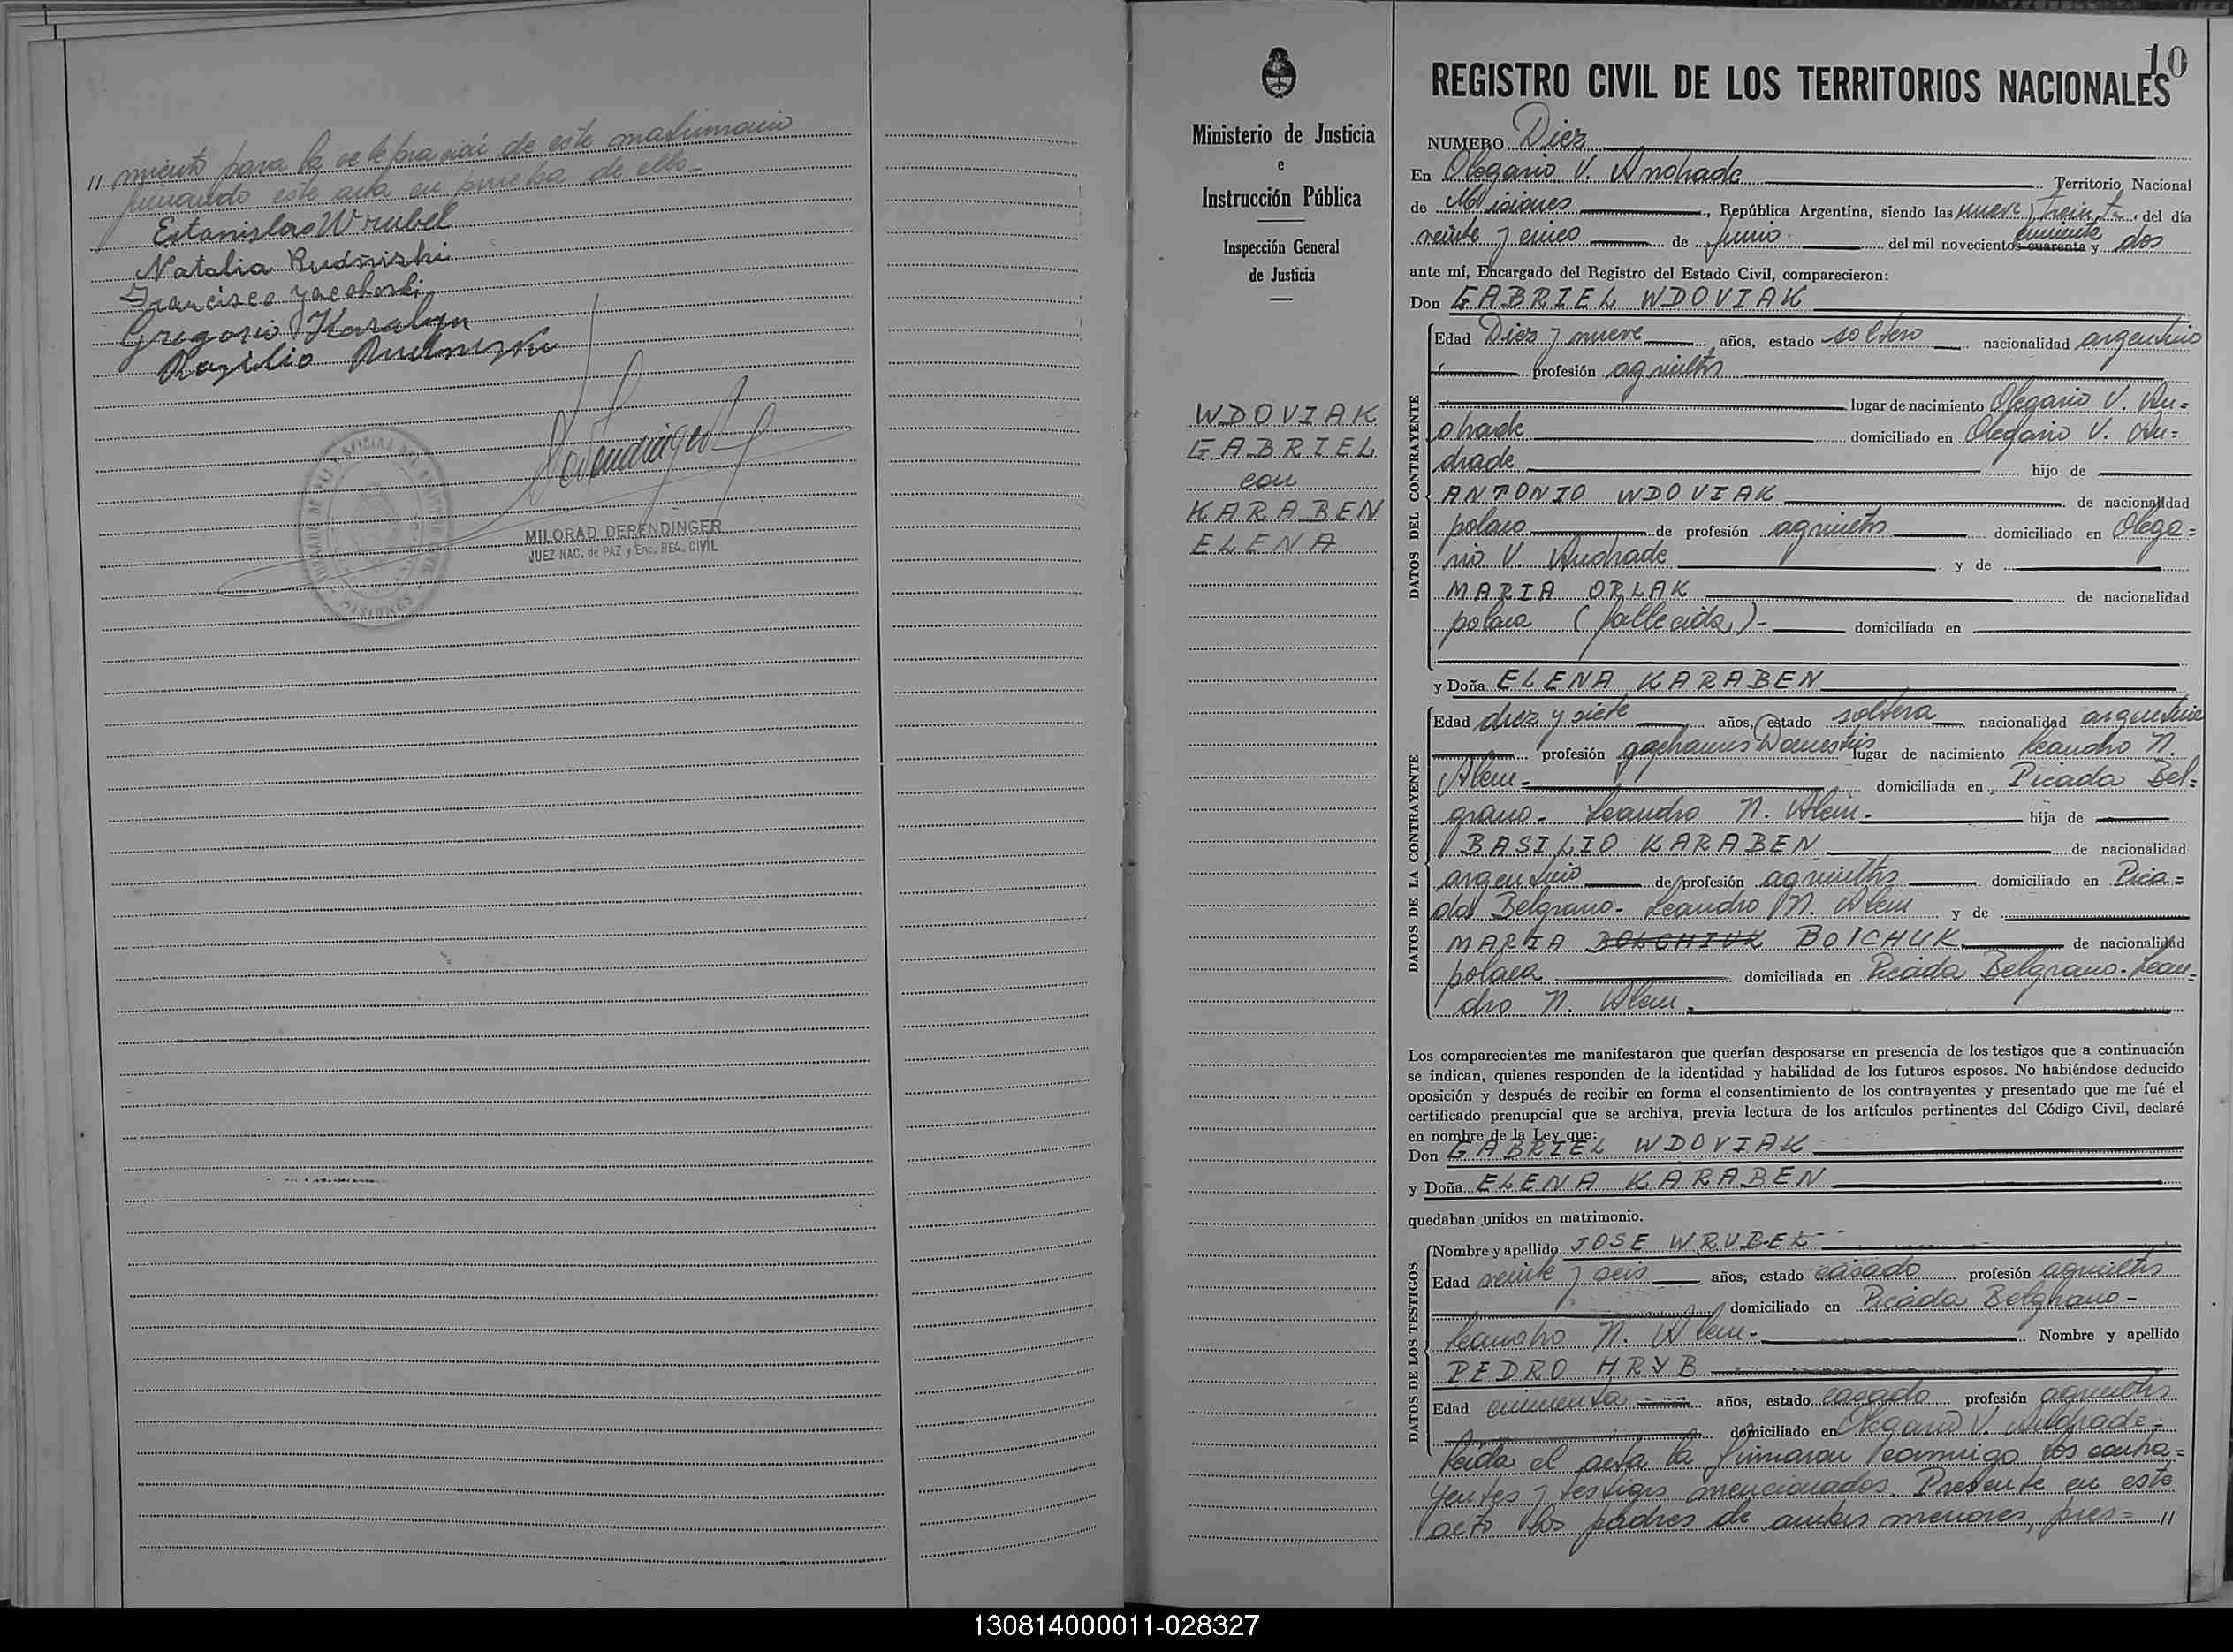 // miento para la celebracion de este matrimonio
firmando este acta en prueba de ello.-
Estanislao Wrubel
Natalia Rudniski
Francisco Jacoboski
Gregorio Karabyn
Basilio Rudnisku
MILORAD DERENDINGER
JUEZ NAC. de PAZ y Enc. REG. CIVIL
MISIONES
Ministerio de Justicia
e
Instrucción Pública
Inspección General
de Justicia
WDOVIAK
GABRIEL
con
KARABEN
ELENA
10
REGISTRO CIVIL DE LOS TERRITORIOS NACIONALES
NUMERO Diez
En Olegario V. Andrade Territorio Nacional
de Misiones, República Argentina, siendo las nueve y treinta, del día
veinte y cinco de Junio del mil novecientos cuarenta y cincuenta dos
ante mí, Encargado del Registro del Estado Civil, comparecieron:
Don GABRIEL WDOVIAK
DATOS DEL CONTRAYENTE
Edad Diez y nueve años, estado soltero nacionalidad argentino
profesión agricultor
lugar de nacimiento Olegario V. An=
drade domiciliado en Olegario V. An=
drade hijo de
ANTONIO WDOVIAK de nacionalidad
polaco de profesión agricultor domiciliado en Olega=
rio V. Andrade y de
MARIA ORLAK de nacionalidad
polaca (fallecida).- domiciliada en
y Doña ELENA KARABEN
DATOS DE LA CONTRAYENTE
Edad diez y siete años, estado soltera nacionalidad argentina
profesión quehaceres Domesticos lugar de nacimiento Leandro N.
Alem.- domiciliada en Picada Bel-
grano.- Leandro N. Alem.- hija de
BASILIO KARABEN de nacionalidad
argentino de profesión agricultor domiciliado en Pica=
da Belgrano.- Leandro N. Alem y de
MARIA BOLCHIUK BOICHUK de nacionalidad
polaca domiciliada en Picada Belgrano.- Lean-
dro N. Alem.
Los comparecientes me manifestaron que querían desposarse en presencia de los testigos que a continuación
se indican, quienes responden de la identidad y habilidad de los futuros esposos. No habiéndose deducido
oposición y después de recibir en forma el consentimiento de los contrayentes y presentado que me fué el
certificado prenupcial que se archiva, previa lectura de los artículos pertinentes del Código Civil, declaré
en nombre de la Ley que:
Don GABRIEL WDOVIAK
y Doña ELENA KARABEN
quedaban unidos en matrimonio.
DATOS DE LOS TESTIGOS
Nombre y apellido JOSE WRUBEL
Edad veinte y seis años, estado casado profesión agricultor
domiciliado en Picada Belgrano-
Leandro N. Alem.- Nombre y apellido
PEDRO HRYB
Edad cincuenta años, estado casado profesión agricultor
domiciliado en Olegario V. Andrade.-
Leida el acta la firmaron conmigo los contra=
yentes y testigos mencionados. Presente en este
acto los padres de ambos menores, pres= //
130814000011-028327